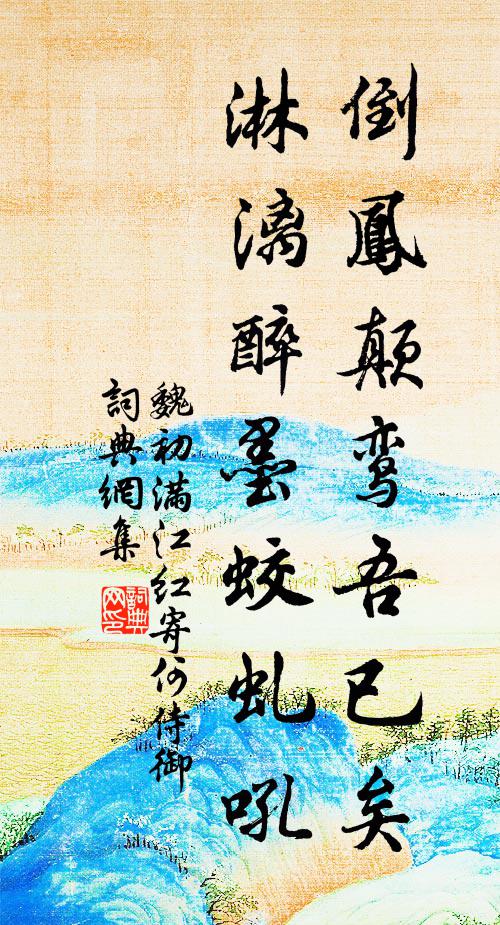 倒鳳顛鸾吾已矣
淋漓醉墨蛟虬吼
魏初满江红寄何侍御
詞典網集
詞典
网印